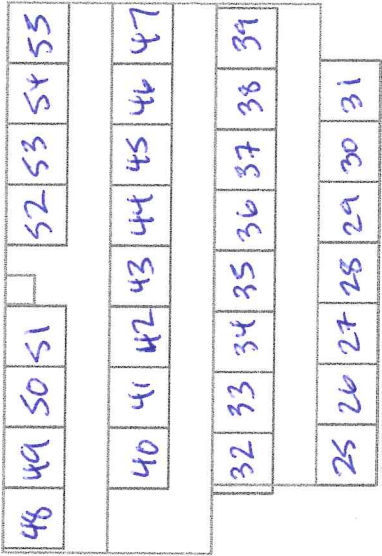 48 49 50 51 52 53 54 55
40 41 42 43 44 45 46 47
32 33 34 35 36 37 38 39
25 26 27 28 29 30 31